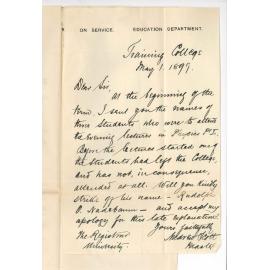 ON SERVICE. EDUCATION DEPARTMENT.
Training College
May 1. 1899.
Dear Sir,
At the beginning of the
term, I sent you the names of
three students who were to attend
the Evening Lectures in Physics Pt I.
Before the lectures started one of
the students had left the College
and has not, in consequence,
attended at all. Will you kindly
strike off his name – Rudolph
O. – and accept my
apology for this late explanation.
Yours faithfully
The Registrar
University.